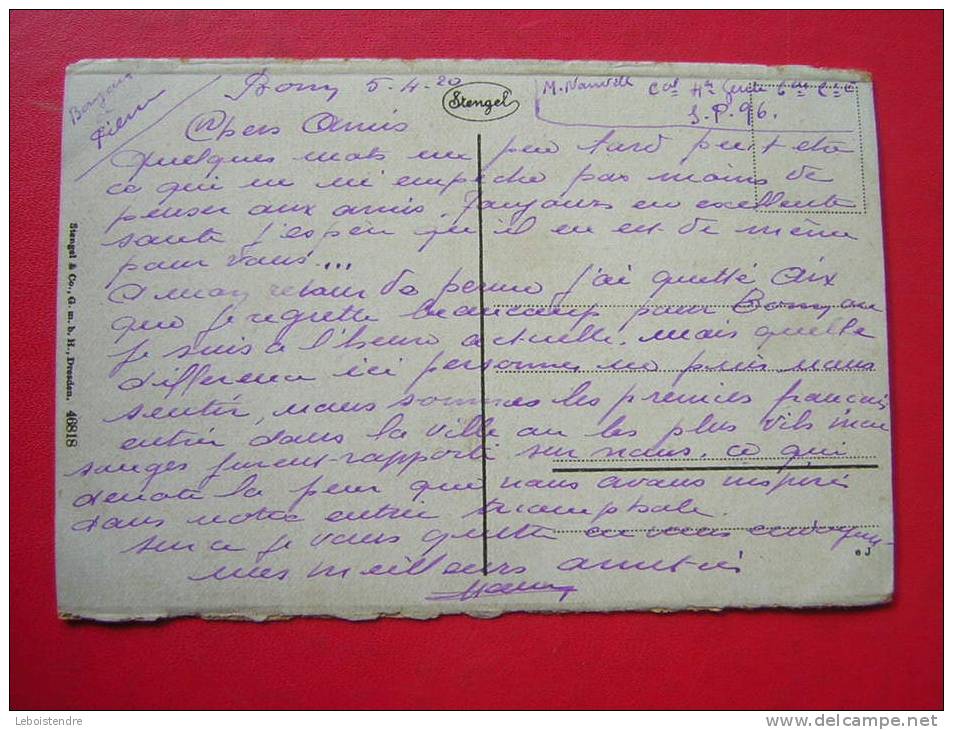 Bonjour
Pierre
Bony 5-4-20
Stengel
M. Cal 4e
S.P. 96.
Chers Amis
Quelques mots un peu tard peut etre
ce qui ne m'empêche pas moins de
penser aux amis. Toujours en excellente
sante j'espère qu'il en est de même
pour vous...
A mon retour de perme j'ai quitté Aix
que je regrette beaucoup pour Bony ou
je suis a l'heure actuelle. Mais quelle
difference ici personne ne peus nous
sentir, nous sommes les premiers français
entré dans la ville ou les plus vils men
songes furent rapporté sur nous. ce qui
denote la peur que nous avons inspiré
dans notre entrée triomphale.
sur ce je vous quitte en vous envoyan
mes meilleurs amitiés
Stengel & Co., G. m. b. H., Dresden. 46818
e J
Leboistendre
www.delcampe.net